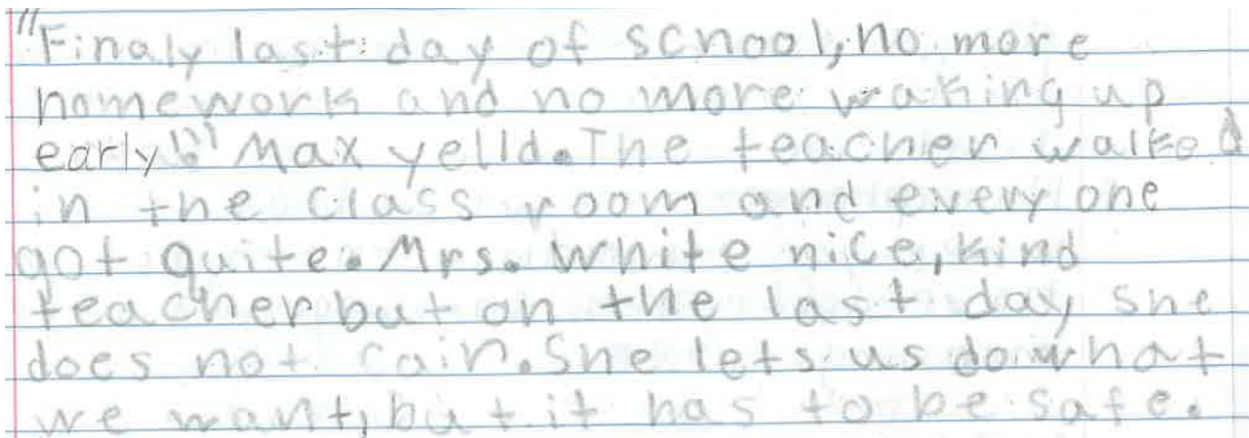 "Finaly last day of school, no more
homework and no more waking up
early!!" Max yelld. The teacher walked
in the class room and every one
got quite. Mrs. White nice, kind
teacher but on the last day she
does not cair. She lets us do what
we want, but it has to be safe.